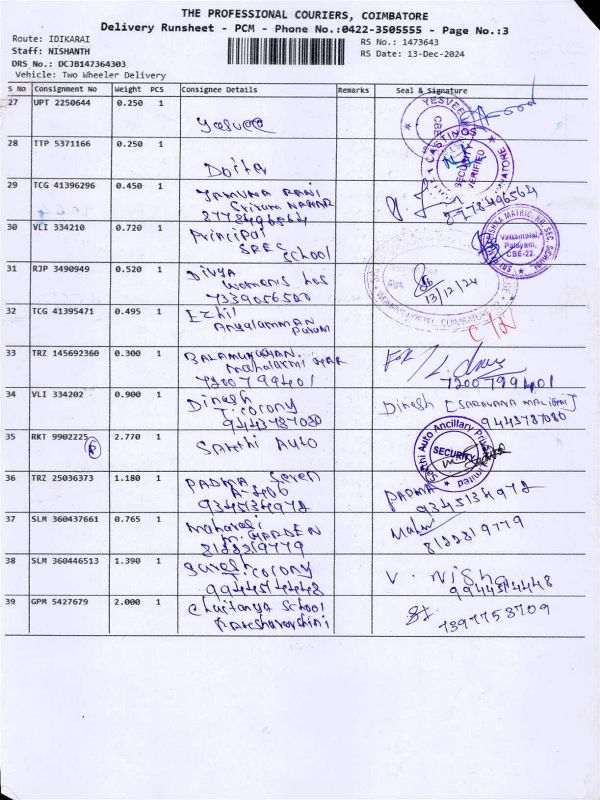 THE PROFESSIONAL COURIERS, COIMBATORE
Delivery Runsheet - PCM - Phone No.:0422-3505555 - Page No.:3
Route: IDIKARAI
RS No.: 1473643
Staff: NISHANTH
RS Date: 13-Dec-2024
DRS No.: DCJB147364303
Vehicle: Two Wheeler Delivery
S No Consignment No Weight PCS Consignee Details Remarks Seal & Signature
27 UPT 2250644 0.250 1
28 TTP 5371166 0.250 1
SECURITY VERIFIED
29 TCG 41396296 0.450 1 JAMUNA RANI
Sriram NAGAR
8778496564 8778496564
30 VLI 334210 0.720 1 Principal
SRES School
Vattamalai, Palayam, CBE-22
31 RJP 3490949 0.520 1 Divya
womens hos
7339056500 13/12/24
32 TCG 41395471 0.495 1 Ezhil
33 TRZ 145692360 0.300 1 BALAMURUGAN
7200799401 7200799401
34 VLI 334202 0.900 1 Dinesh Dinesh [SARAVANA MALIGAI]
T. colony
9443787080 9443787080
35 RKT 9902225 2.770 1 Santhi Auto
SECURITY
36 TRZ 25036373 1.180 1 PADMA Seven PADMA
9345134978 9345134978
37 SLM 360437661 0.765 1
8122219779 8122219779
38 SLM 360446513 1.390 1 Suresh
T. colony V. Nisha
9944514448 9944514448
39 GPM 5427679 2.000 1 Chaitanya School
7397758709